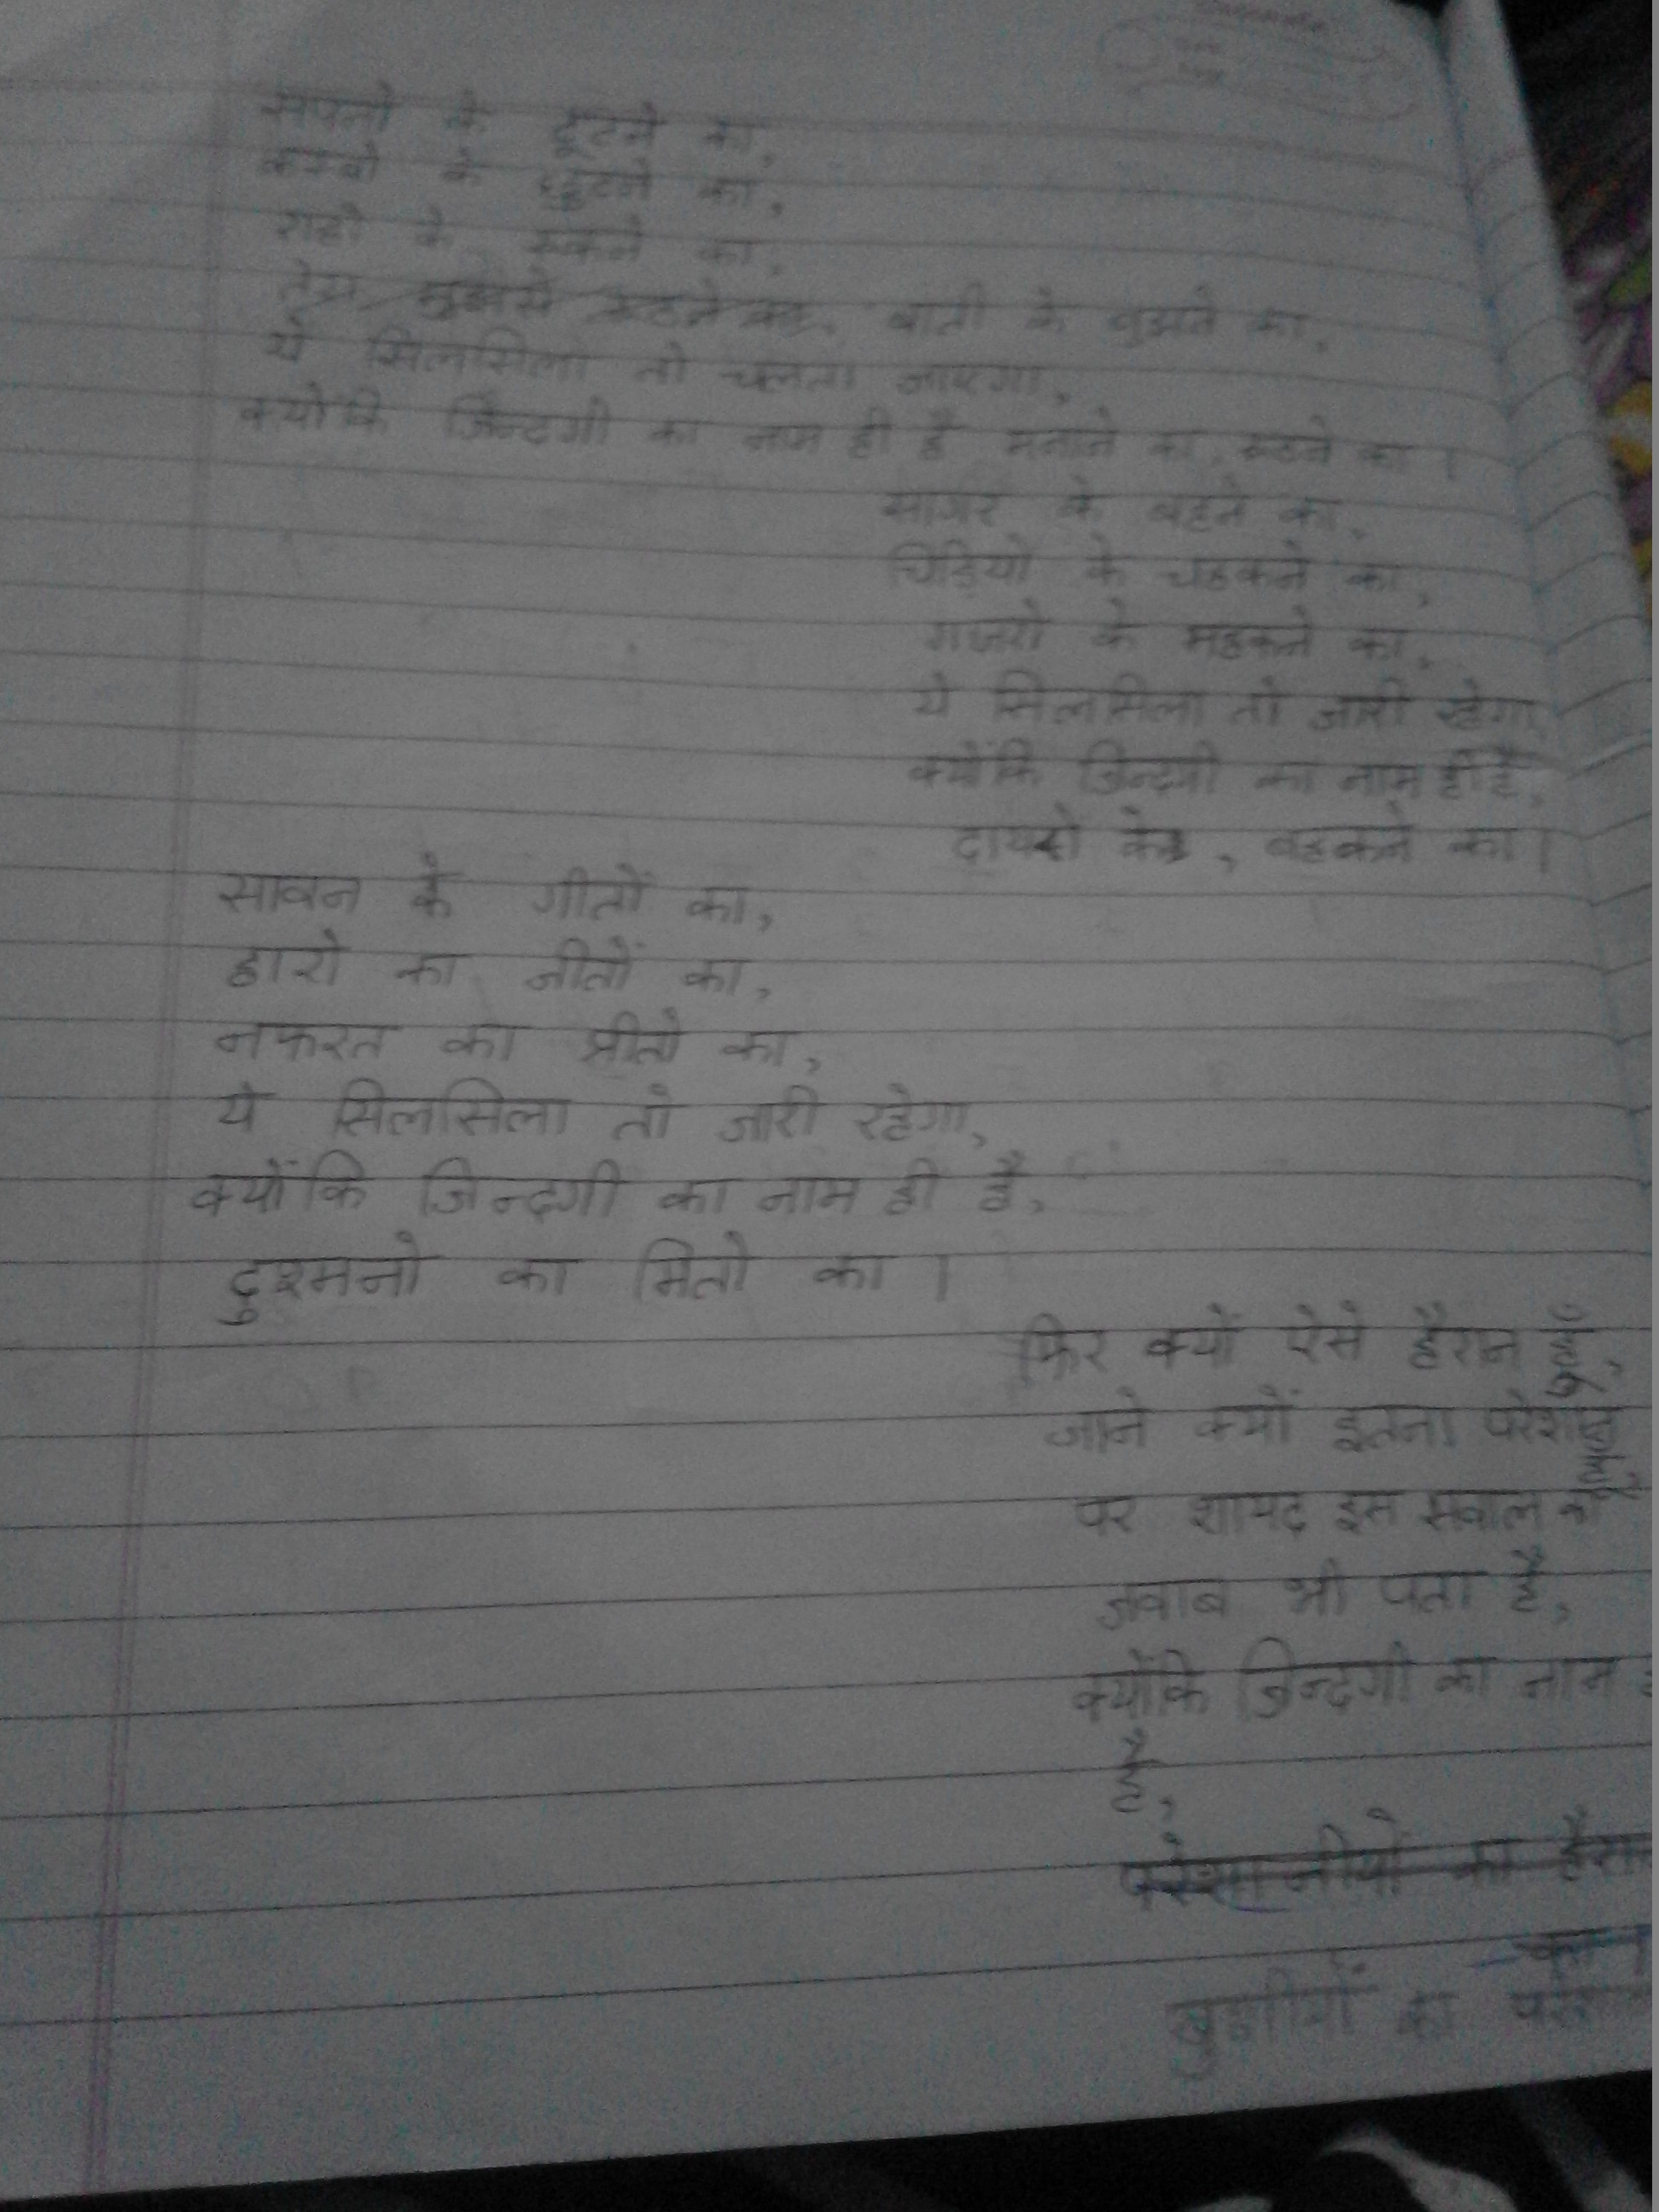 सपनो के टूटने का,
कस्बो के छुटने का,
राहो के रुकने का,
तेरा मुझसे रूठने का, बाती के बुझने का,
ये सिलसिला तो चलता जाएगा,
क्योंकि जिन्दगी का नाम ही है मनाने का, रूठने का।
सागर के बहने का,
चिड़ियो के चहकने का,
गजरो के महकने का,
ये सिलसिला तो जारी रहेगा
क्योंकि जिन्दगी का नाम ही है,
दायरो के, बहकने का।
सावन के गीतों का,
हारो का जीतों का,
नफरत का प्रीतो का,
ये सिलसिला तो जारी रहेगा,
क्योंकि जिन्दगी का नाम ही है,
दुश्मनो का मितो का।
फिर क्यों ऐसे हैरान हूँ,
जाने क्यों इतना परेशान हूँ,
पर शायद इस सवाल का
जवाब भी पता है,
क्योंकि जिन्दगी का नाम
है,
परेशानीयो का
का।
खुशीयों का